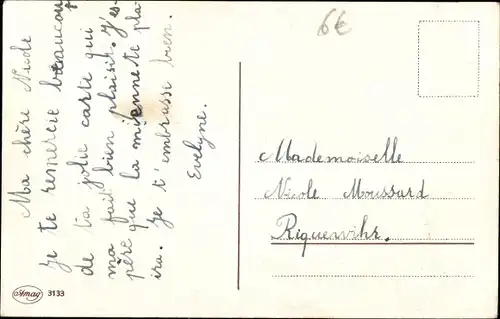 Ma chère Nude
Je te remercie beaucoup
de ta jolie carte qui
ma fait bien plaisir. J'es-
père que la mienne te pla-
ira. Je t'embrasse bien.
Evelyne.
6€
Mademoiselle
Nicole Moussard
Riquewihr.
Amag 3133